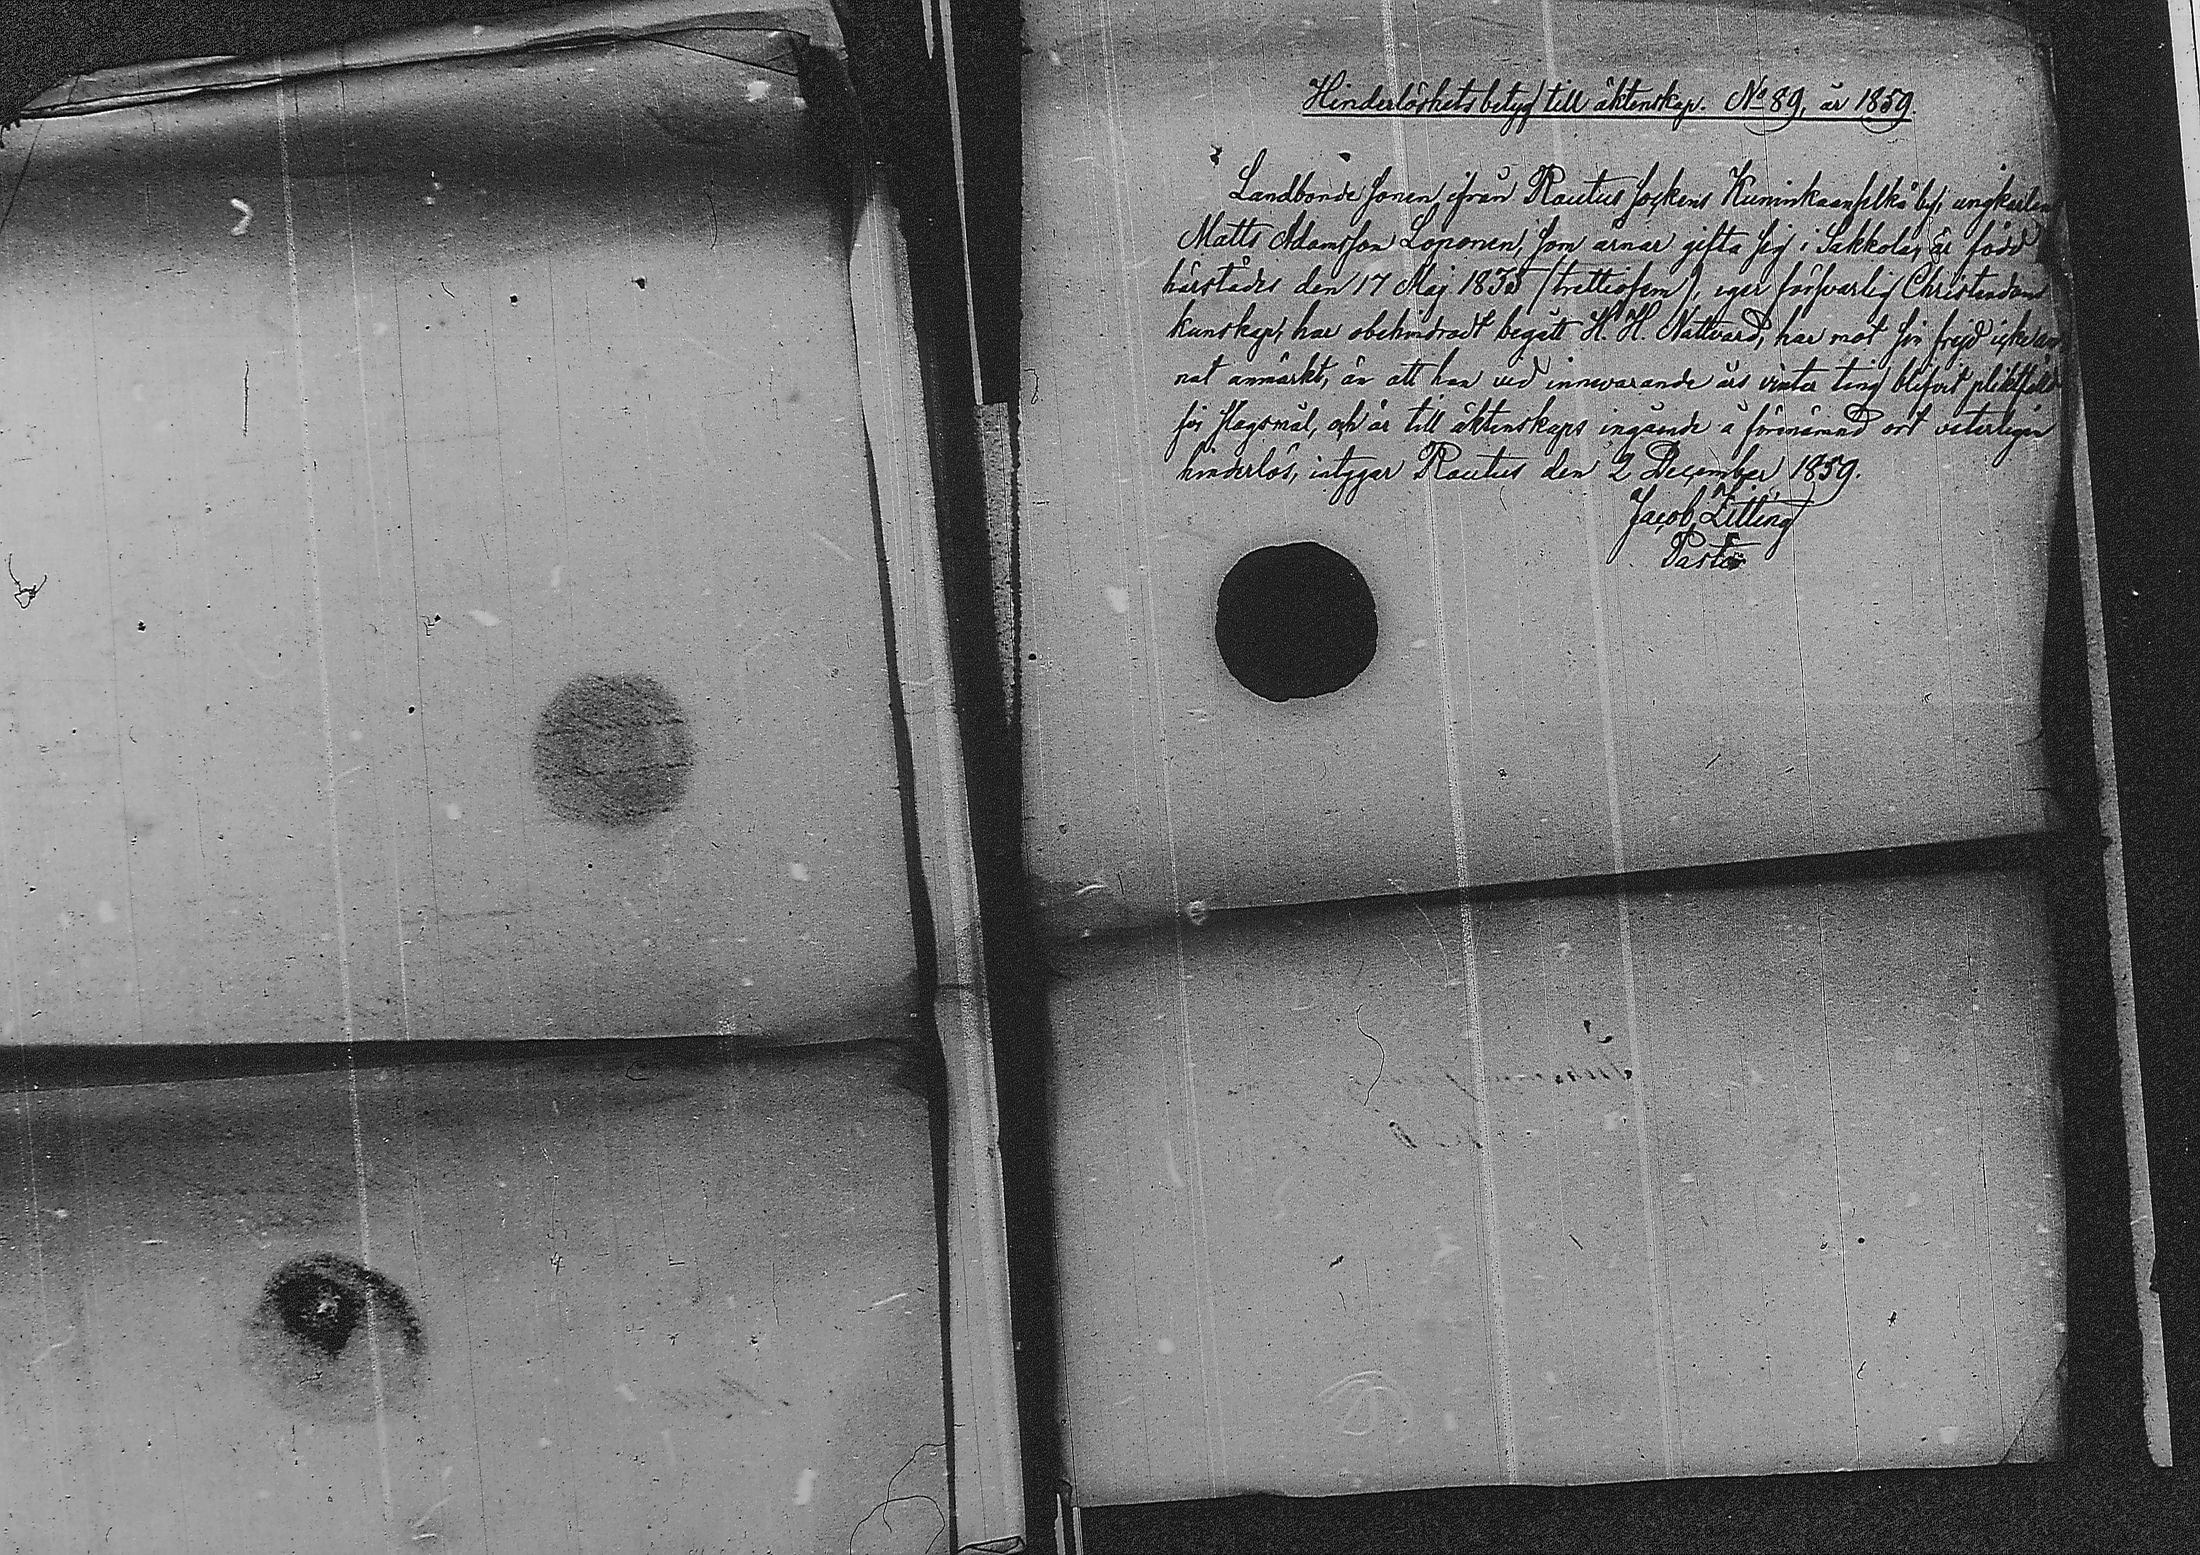 Hinderlöshets betyg till äktenskap. No 89, år 1859.
Landbonde sonen ifrån Rautus Sockens Kuninkaanselkä by, ungkarlen
Matts Adamsson Loponen, som ärnar gifta sig i Sakkola, är född
härstädes den 17 Maj 1835 (trettiofem), eger försvarlig Christendoms
kunskap, har obehindradt begått H. H. Nattvard, har mot sin frejd icke an-
nat anmärkt, än att han ved innevarande års vinter ting blifvit pliktfäld
för slagsmål, och är till äktenskaps ingående å förenämnd ort veterligen
hinderlös, intygar Rautus den 2 December 1859.
Jacob Zitting
Pastor